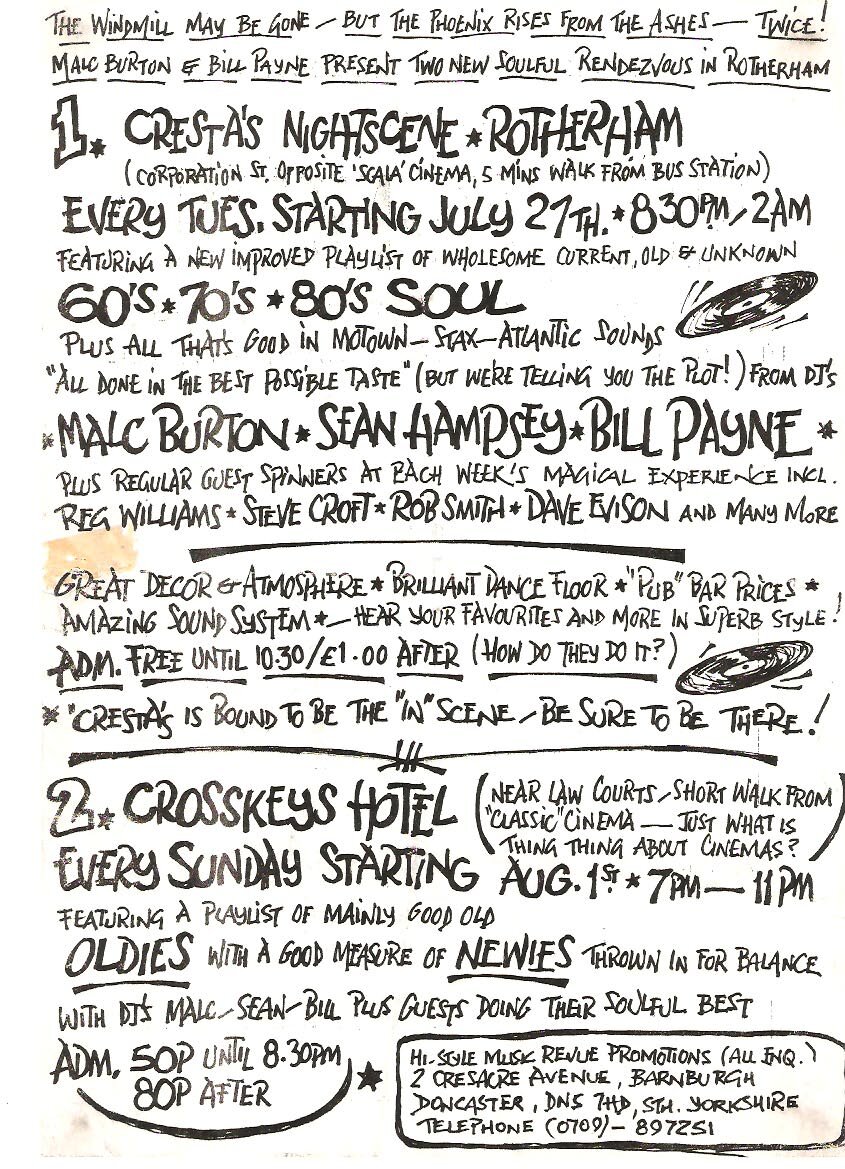 THE WINDMILL MAY BE GONE — BUT THE PHOENIX RISES FROM THE ASHES — TWICE!
MALC BURTON & BILL PAYNE PRESENT TWO NEW SOULFUL RENDEZVOUS IN ROTHERHAM
1. * CRESTA'S NIGHTSCENE * ROTHERHAM
(CORPORATION ST. OPPOSITE 'SCALA' CINEMA, 5 MINS WALK FROM BUS STATION)
EVERY TUES. STARTING JULY 27TH. * 8 30PM / 2AM
FEATURING A NEW IMPROVED PLAYLIST OF WHOLESOME CURRENT, OLD & UNKNOWN
60'S * 70'S * 80'S SOUL
PLUS ALL THAT'S GOOD IN MOTOWN — STAX — ATLANTIC SOUNDS
"ALL DONE IN THE BEST POSSIBLE TASTE" (BUT WE'RE TELLING YOU THE PLOT!) FROM DJ's
* MALC BURTON * SEAN HAMPSEY * BILL PAYNE *
PLUS REGULAR GUEST SPINNERS AT EACH WEEK'S MAGICAL EXPERIENCE INCL.
REG WILLIAMS * STEVE CROFT * ROB SMITH * DAVE EVISON AND MANY MORE
GREAT DECOR & ATMOSPHERE * BRILLIANT DANCE FLOOR * "PUB" BAR PRICES *
AMAZING SOUND SYSTEM * — HEAR YOUR FAVOURITES AND MORE IN SUPERB STYLE!
ADM. FREE UNTIL 10.30 / £1.00 AFTER (HOW DO THEY DO IT?)
* "CRESTA'S IS BOUND TO BE THE "IN" SCENE — BE SURE TO BE THERE!
2. * CROSSKEYS HOTEL (NEAR LAW COURTS — SHORT WALK FROM
"CLASSIC" CINEMA — JUST WHAT IS
THING THING ABOUT CINEMAS?)
EVERY SUNDAY STARTING AUG. 1ST * 7PM — 11PM
FEATURING A PLAYLIST OF MAINLY GOOD OLD
OLDIES WITH A GOOD MEASURE OF NEWIES THROWN IN FOR BALANCE
WITH DJ's MALC — SEAN — BILL PLUS GUESTS DOING THEIR SOULFUL BEST
ADM. 50P UNTIL 8.30PM
80P AFTER *
HI-STYLE MUSIC REVUE PROMOTIONS (ALL ENQ.)
2 CRESACRE AVENUE, BARNBURGH
DONCASTER, DN5 7HD, STH. YORKSHIRE
TELEPHONE (0709) — 897251